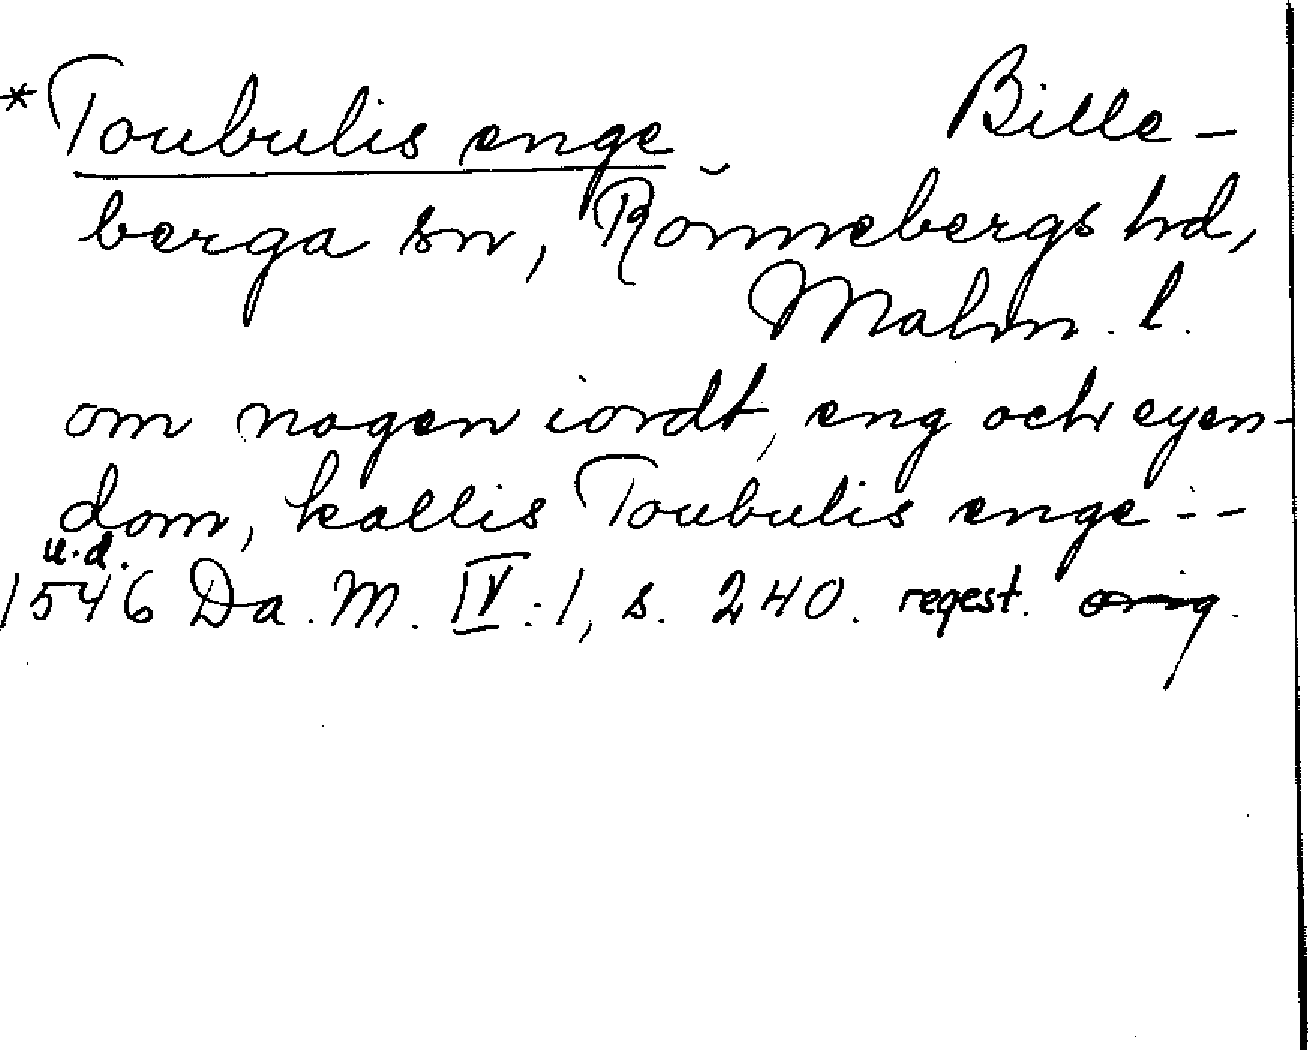 *Toubulis enge Bille-
berga sn, Rönnebergs hd,
Malm. l.
om nogen iordt, eng och eyen-
dom, kallis Toubulis enge--
u.d.
1546 Da. M. IV:1, s. 240. regest. orig.